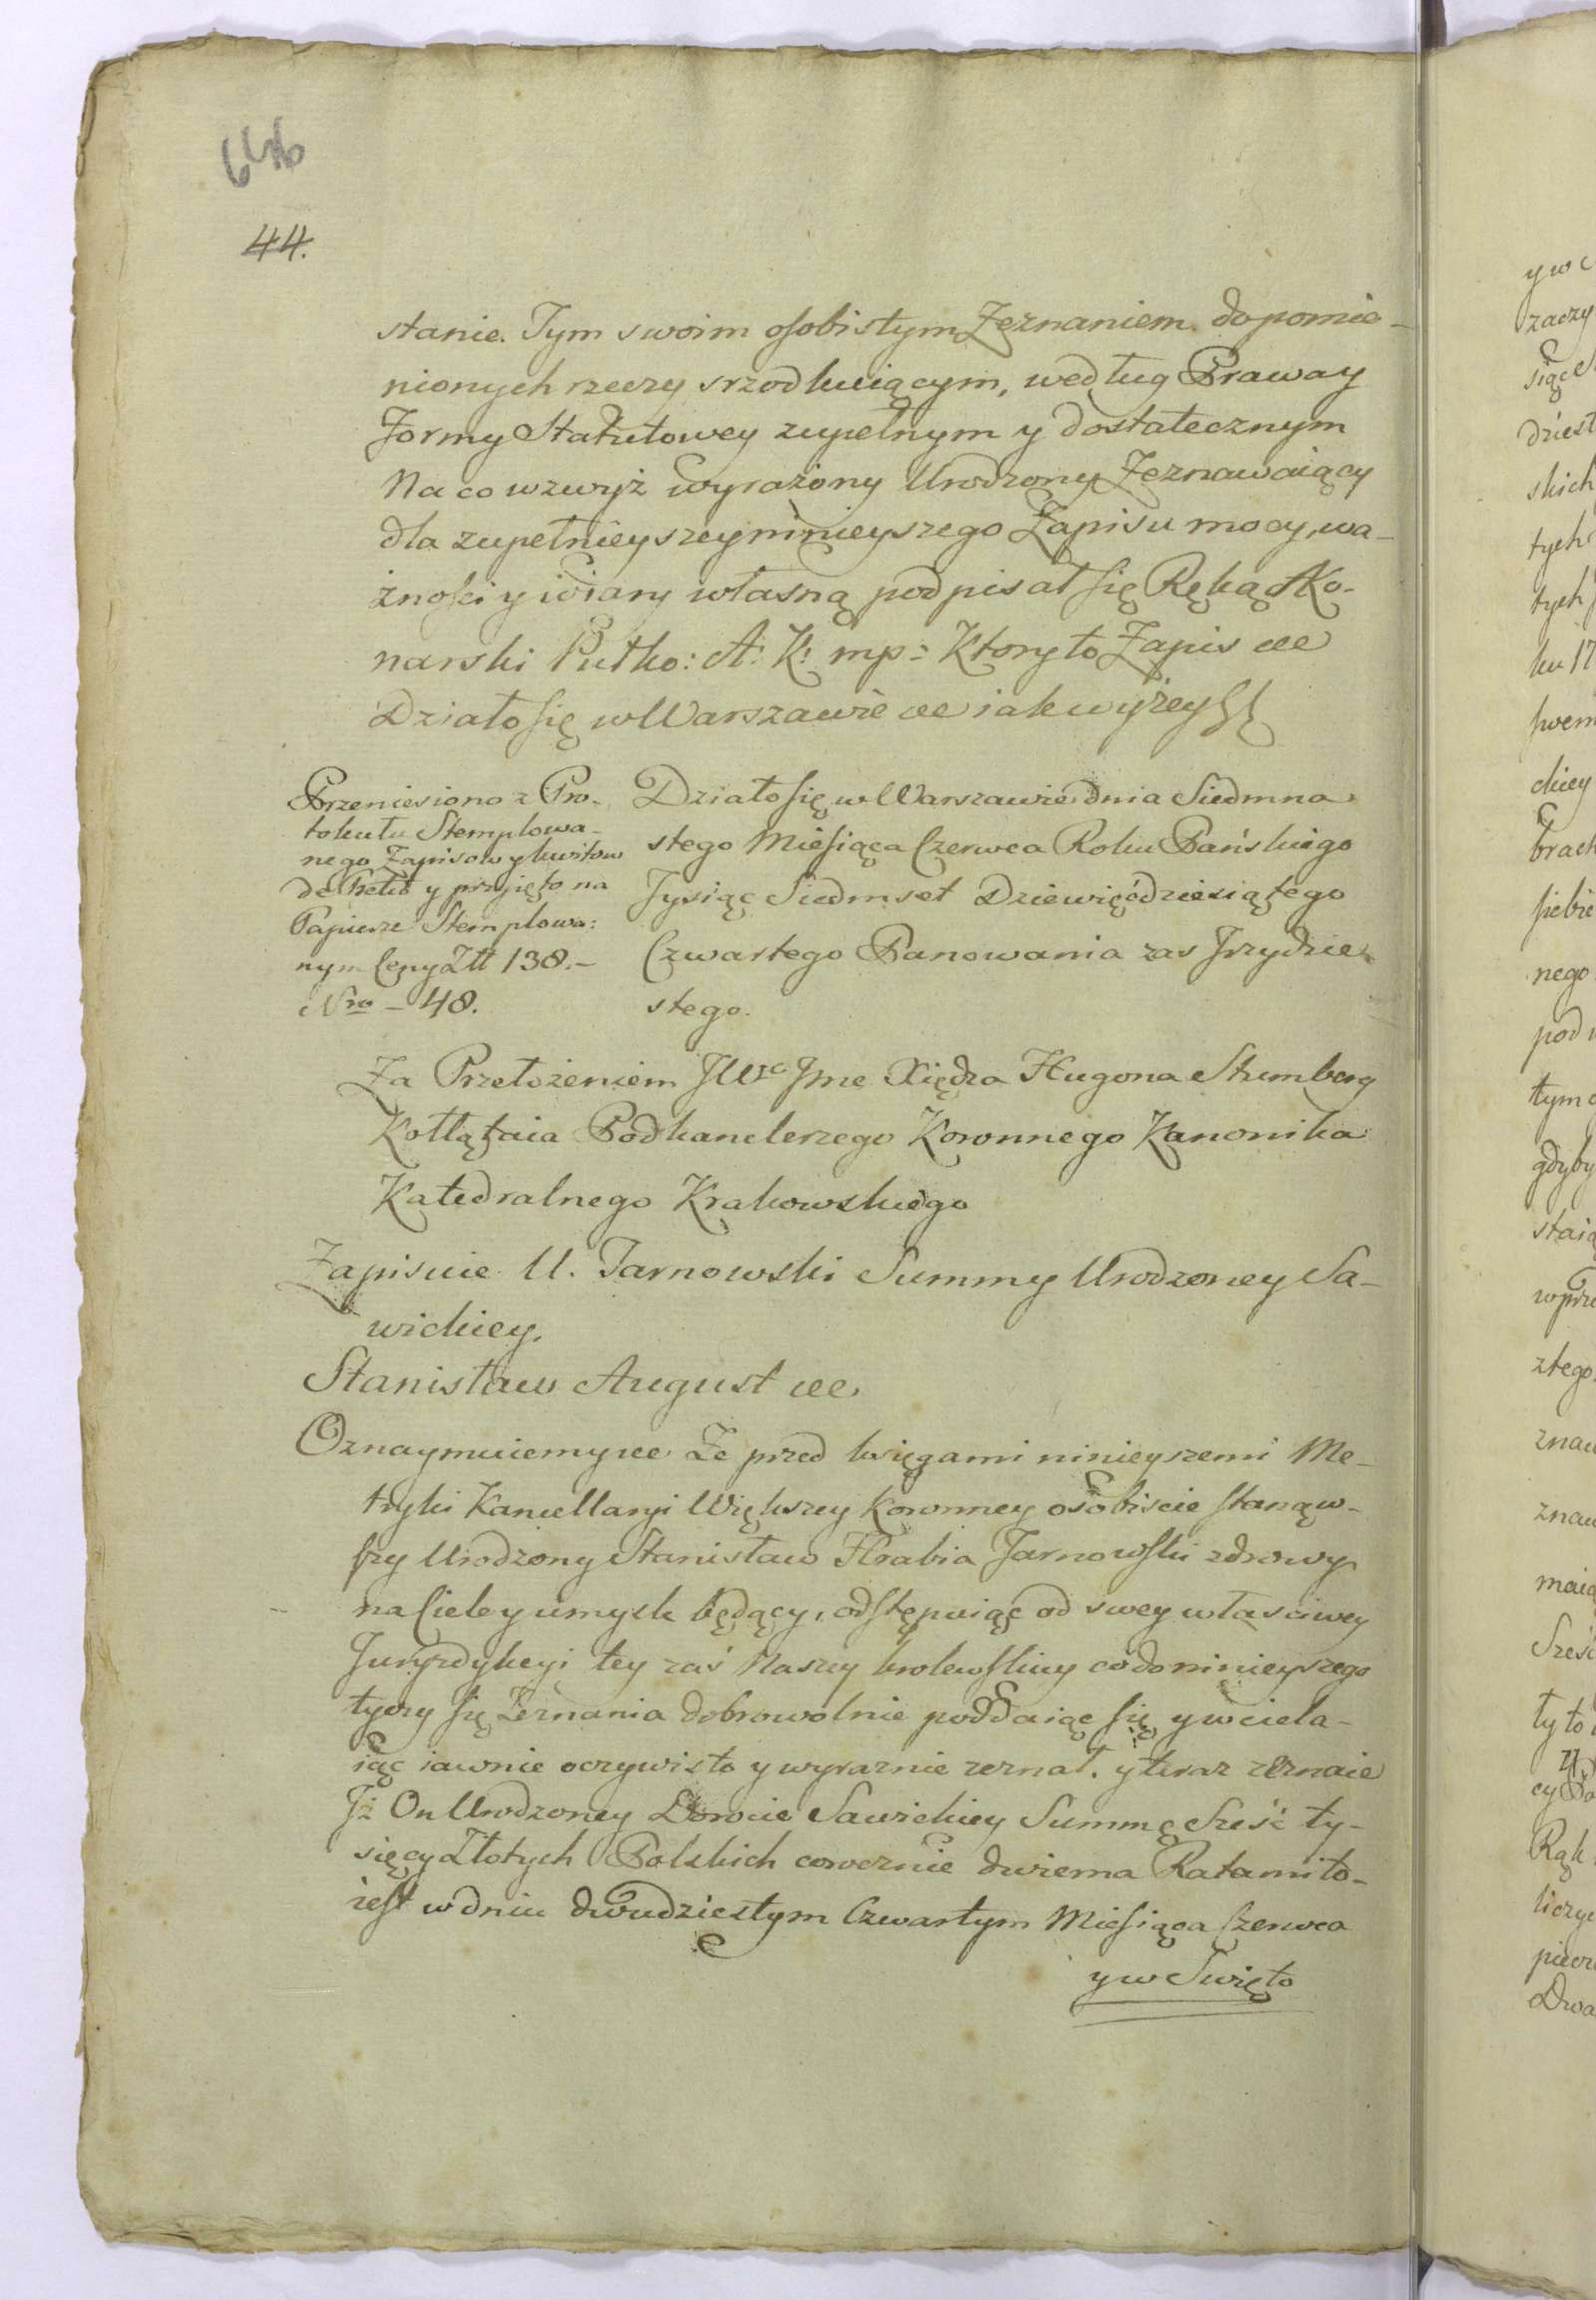 646
44.
stanie. Tym swoim osobistym Zeznaniem do pomie-
nionych rzeczy srzodkuiącym, według Prawa y
Formy Statutowey zupełnym y dostatecznym
Na co wzwyż wyrażony Urodzony Zeznawaiący
dla zupełnieyszey ninieyszego Zapisu mocy, wa-
żności y wiary własną podpisał się Ręką AKo-
narski Pułko: A: K: mp: Ktory to Zapis etc
Działo się w Warszawie etc iak wyżey
Przeniesiono z Pro-
tokułu Stemplowa-
nego Zapisow y kwitow
de
y przyięto na
Papierze Stemplowa:
nym Ceny Złł 138.-
Nro - 48.
Działo się w Warszawie dnia Siedmna-
stego Miesiąca Czerwca Roku Pańskiego
Tysiąc Siedmset Dziewięćdziesiątego
Czwartego Panowania zas Trzydzie-
stego.
Za Przełożeniem JWc Jmc Xiędza Hugona Stumberg
Kołłątaia Podkanclerzego Koronnego Kanonika
Katedralnego Krakowskiego
Zapisuie U. Tarnowski Summy Urodzoney Sa-
wickiey.
Stanisław August etc
Oznaymuiemy etc Ze przed księgami ninieyszemi Me-
tryki Kancellaryi Większey Koronney osobiscie stanąw-
szy Urodzony Stanisław Hrabia Tarnowski zdrowy
na Ciele y umysle będący, odstępuiąc od swey własciwey
Juryzdykcyi tey zaś Naszey krolewskiey co do ninieyszego
tyczy się Zeznania dobrowolnie poddaiąc się y wciela-
iąc iawnie oczywisto y wyraznie zeznał. y teraz zeznaie
Jż On Urodzoney Dorocie Sawickiey Summę Sześć ty-
sięcy Złotych Polskich corocznie dwiema Ratami to-
iest w dniu dwudziestym Czwartym Miesiąca Czerwca
y w Swięto